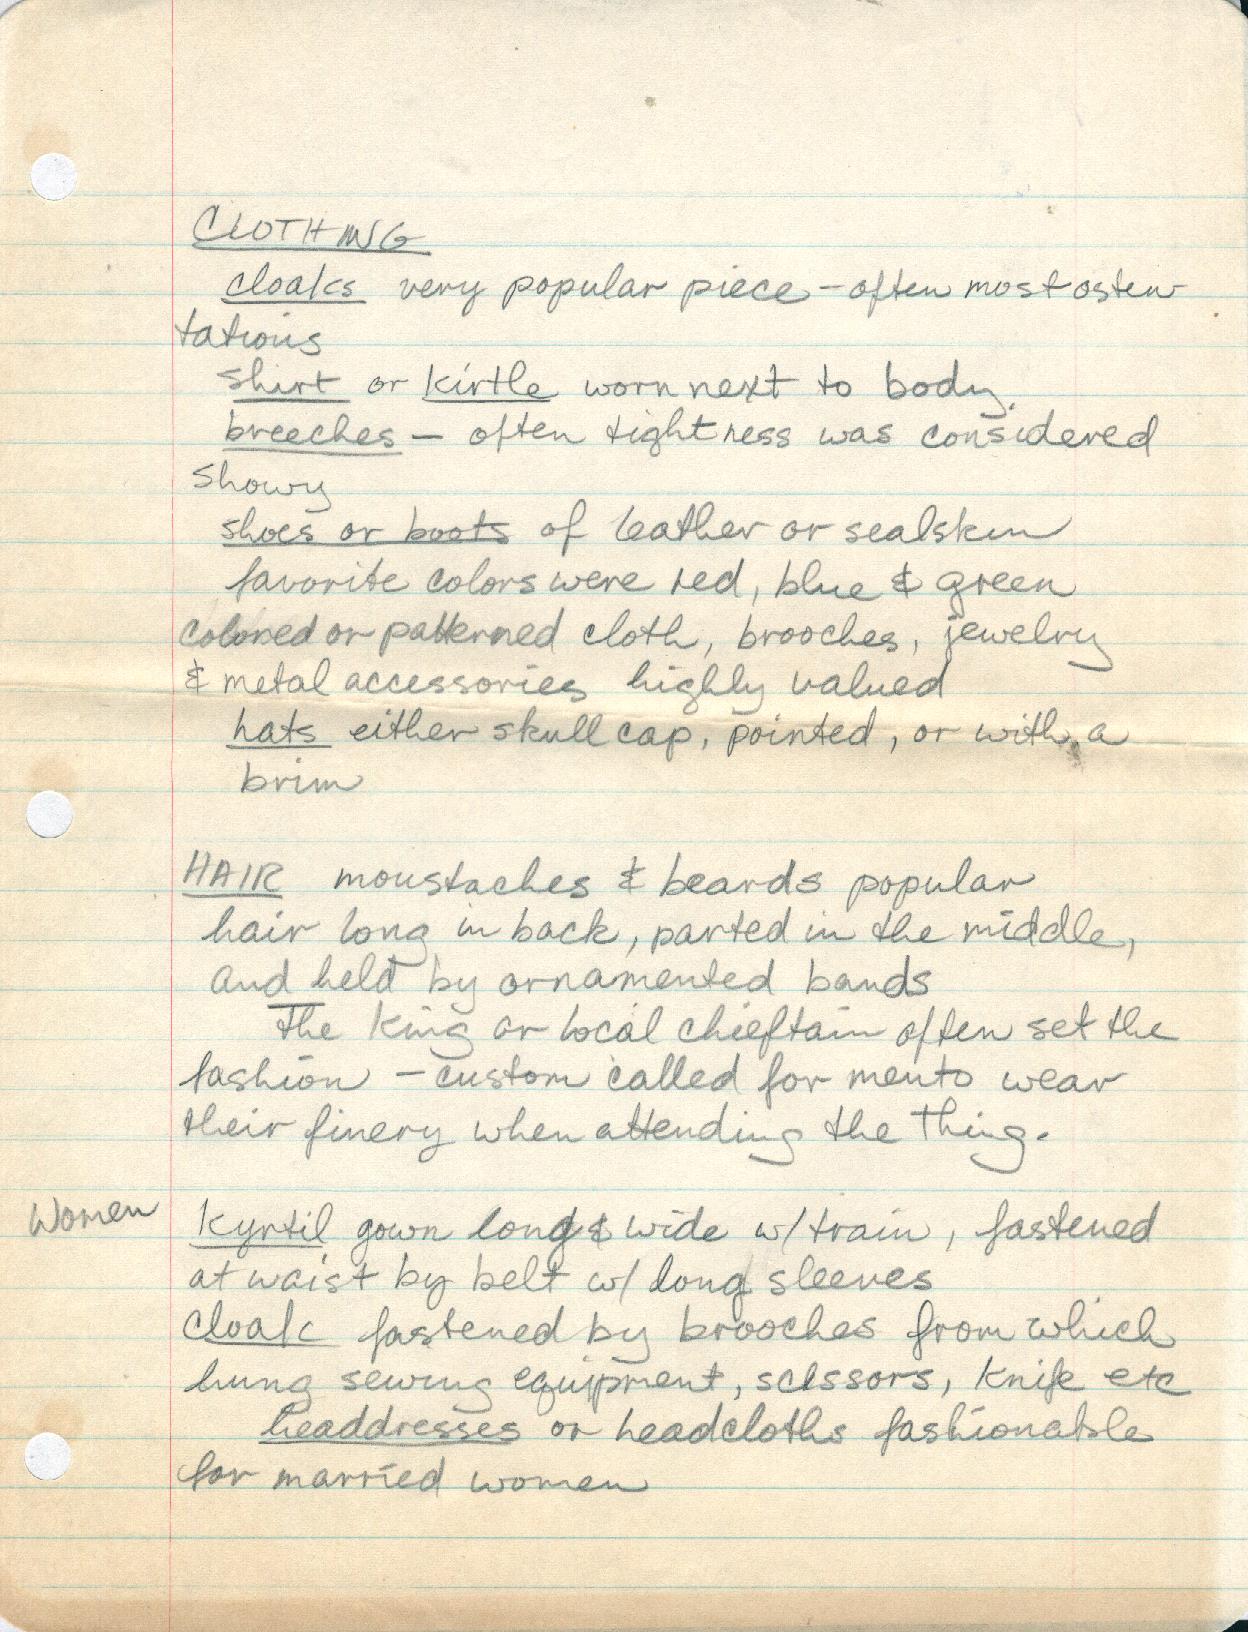 CLOTHING
cloaks very popular piece - often most osten
tatious
shirt or kirtle worn next to body.
breeches - often tightness was considered
showy
shoes or boots of leather or sealskin
favorite colors were red, blue & green
colored or patterned cloth, brooches, jewelry
& metal accessories highly valued
hats either skull cap, pointed, or with a
brim
HAIR moustaches & beards popular
hair long in back, parted in the middle,
and held by ornamented bands
The King or local chieftain often set the
fashion - custom called for men to wear
their finery when attending the Thing.
Women Kyrtil gown long & wide w/ train, fastened
at waist by belt w/ long sleeves
cloak fastened by brooches from which
hung sewing equipment, scissors, knife etc
headdresses or headcloths fashionable
for married women